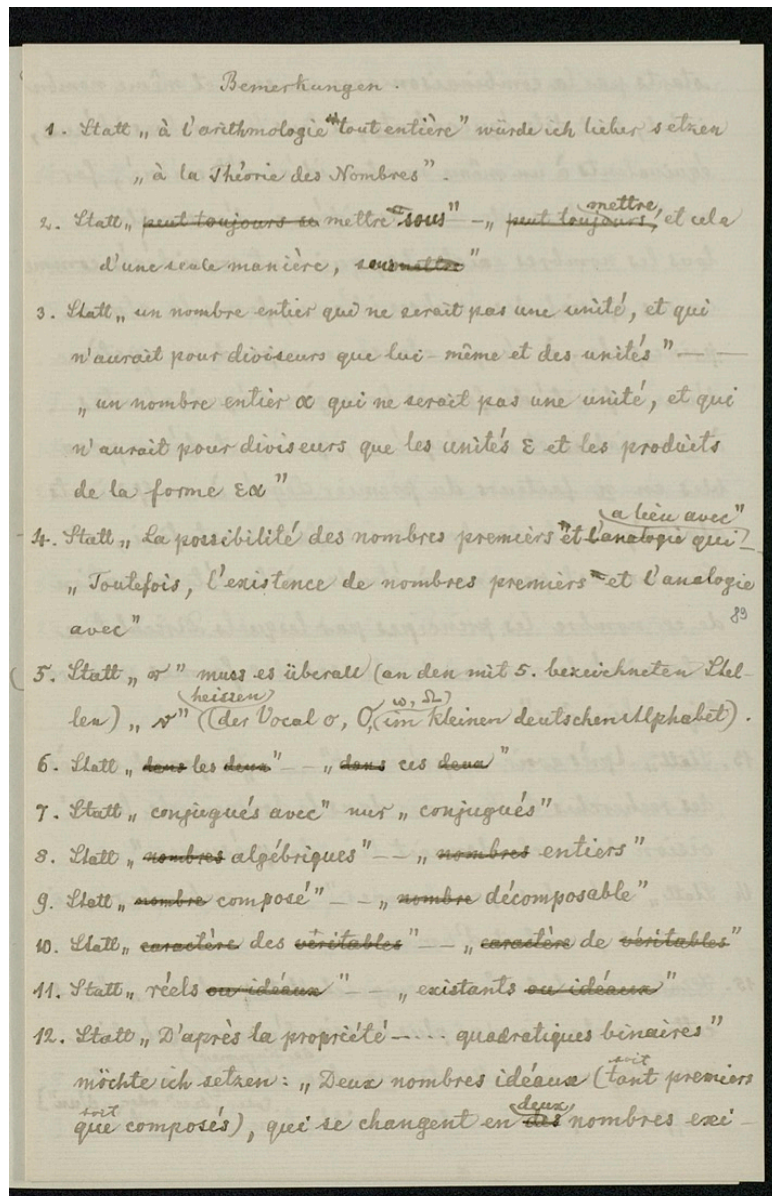 Bemerkungen.
1. Statt „à l'arithmologie tout entière" würde ich lieber setzen
„à la Théorie des Nombres".
2. Statt „peut toujours se mettre sous" – „peut toujours, mettre, et cela
d'une seule manière,
3. Statt „un nombre entier qui ne serait pas une unité, et qui
n'aurait pour diviseurs que lui-même et des unités" — —
„un nombre entier α qui ne serait pas une unité, et qui
n'aurait pour diviseurs que les unités ε et les produits
de la forme εα"
a lieu avec"
4. Statt „La possibilité des nombres premiers et l'analogie qui –
„Toutefois, l'existence de nombres premiers et l'analogie
avec"
89
5. Statt „ " muss es überall (an den mit 5. bezeichneten Stel-
heissen ω, Ω
len) „ " (der Vocal o, O, im kleinen deutschen Alphabet).
6. Statt „dans les deux" – – „dans ces deux"
7. Statt „conjugués avec" nur „conjugués"
8. Statt „nombres algébriques" – – „nombres entiers"
9. Statt „nombre composé" – – „nombre décomposable"
10. Statt „caractère des véritables" – – „caractère de véritables"
11. Statt „réels ou idéaux" – – „existants ou idéaux"
12. Statt „D'après la propriété – .... quadratiques binaires"
möchte ich setzen: „Deux nombres idéaux (soit tant premiers
soit que composés), qui se changent en deux des nombres exi–